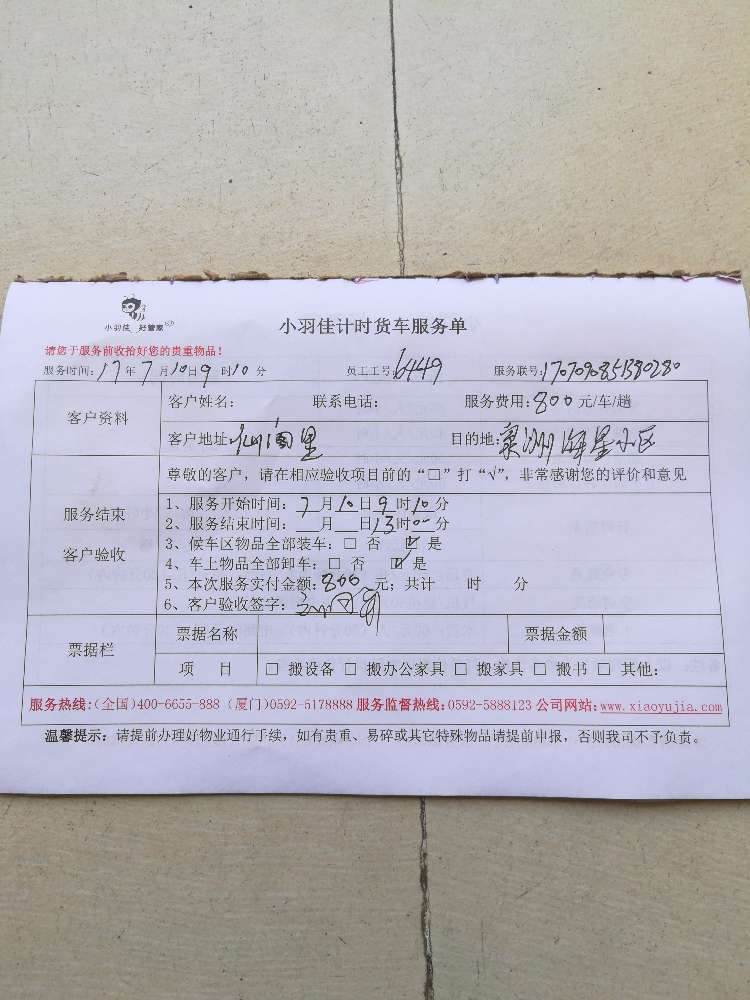 小羽佳 好管家
小羽佳计时货车服务单
请您于服务前收拾好您的贵重物品！
服务时间：17年7月10日9时10分 员工工号：6449 服务联号：
客户资料
客户姓名： 联系电话： 服务费用：800元/车/趟
客户地址： 目的地：
尊敬的客户，请在相应验收项目前的“□”打“√”，非常感谢您的评价和意见
服务结束
客户验收
1、服务开始时间：7月10日9时10分
2、服务结束时间：__月__日13时00分
3、候车区物品全部装车：□ 否 ☑ 是
4、车上物品全部卸车：□ 否 ☑ 是
5、本次服务实付金额：800元；共计 时 分
6、客户验收签字：
票据栏
票据名称 票据金额
项 目 □ 搬设备 □ 搬办公家具 □ 搬家具 □ 搬书 □ 其他：
服务热线：(全国)400-6655-888 (厦门)0592-5178888 服务监督热线：0592-5888123 公司网站：www.xiaoyujia.com
温馨提示：请提前办理好物业通行手续，如有贵重、易碎或其它特殊物品请提前申报，否则我司不予负责。